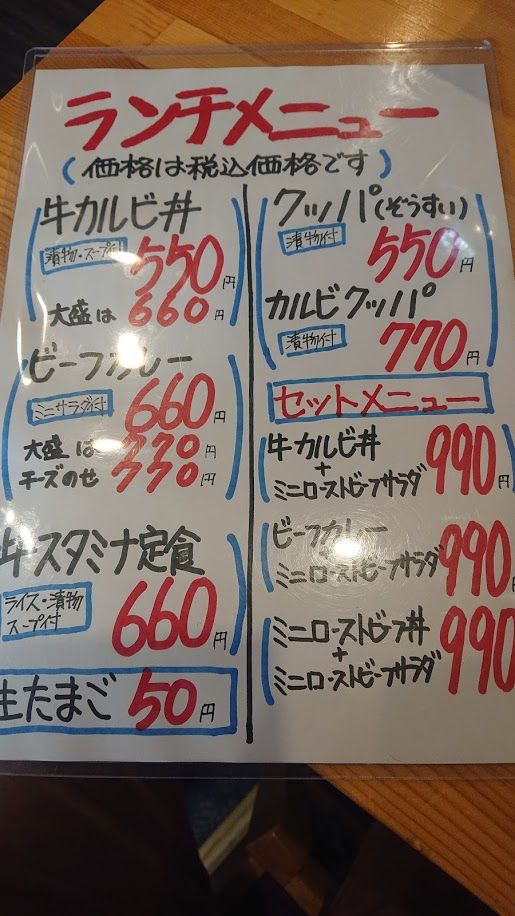 ランチメニュー
(価格は税込価格です)
牛カルビ丼
漬物・スープ付
550円
大盛は 660円
ビーフカレー
ミニサラダ付
660円
大盛は 770円
チーズのせ 770円
牛スタミナ定食
ライス・漬物
スープ付
660円
生たまご 50円
クッパ(ぞうすい)
漬物付
550円
カルビクッパ
漬物付
770円
セットメニュー
牛カルビ丼
+
ミニローストビーフサラダ
990円
ビーフカレー
ミニローストビーフサラダ
990円
ミニローストビーフ丼
+
ミニローストビーフサラダ
990